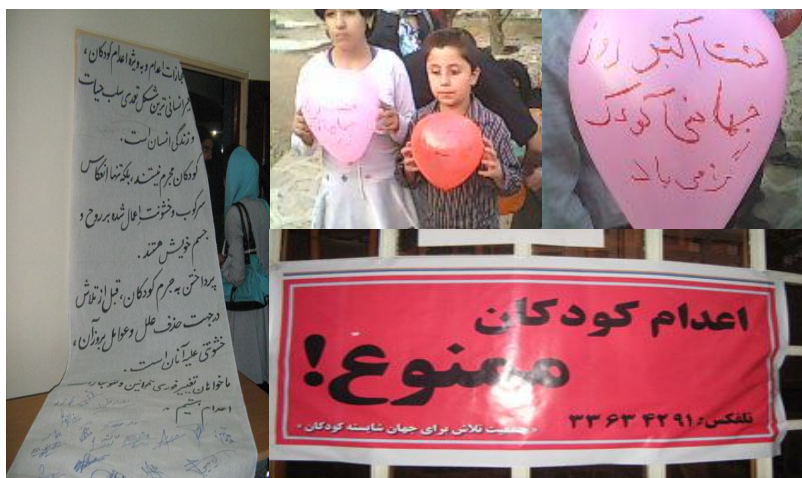 مجازات اعدام و به ویژه اعدام کودکان،
غیر انسانی ترین شکل تئوری سلب حیات
و زندگی انسان است.
کودکان مجرم نیستند، بلکه تنها انعکاس
سرکوب و خشونت اعمال شده بر روح و
جسم خویش هستند.
پرداختن به جرم کودکان، قبل از تلاش
در جهت حذف علل و عوامل بروز آن،
خشونتی علیه آنان است.
ما خواهان تغییر فوری قوانین و
اعدام هستیم.
هشت اکتبر روز
جهانی کودک
گرامی باد
اعدام کودکان
ممنوع!
تلفکس: ۳۳۶۳۴۲۹۱
« جمعیت تلاش برای جهان شایسته کودکان »